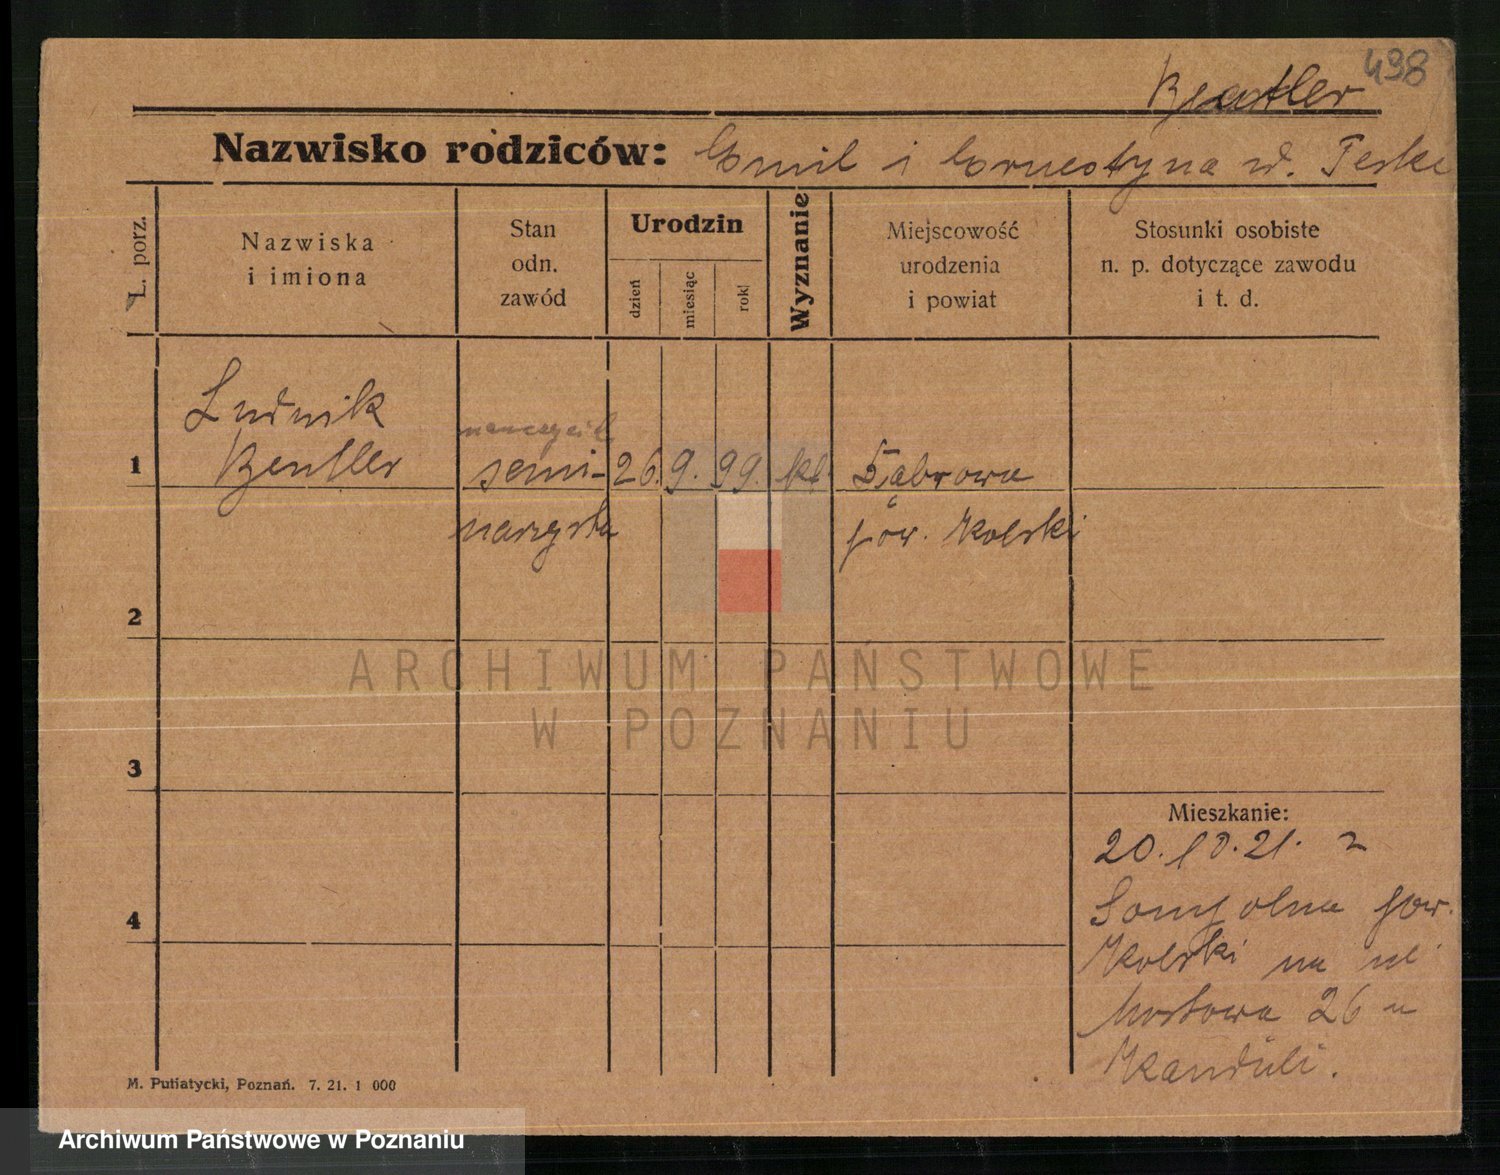 498
Beutler
Nazwisko rodziców: Emil i Ernestyna z d. Teske
L. porz.
Nazwiska
i imiona
Stan
odn.
zawód
Urodzin
dzień
miesiąc
rok
Wyznanie
Miejscowość
urodzenia
i powiat
Stosunki osobiste
n. p. dotyczące zawodu
i t. d.
Ludwik
nauczyciel
1 Beutler semi- 26. 9. 99. Dąbrowa
narzysta pow. Kolski
2
ARCHIWUM PAŃSTWOWE
W POZNANIU
3
Mieszkanie:
20. 10. 21. z
4 Sompolna pow.
Kolski na ul
Mostowa 26 u
Kanduli.
M. Putiatycki, Poznań. 7. 21. 1 000
Archiwum Państwowe w Poznaniu